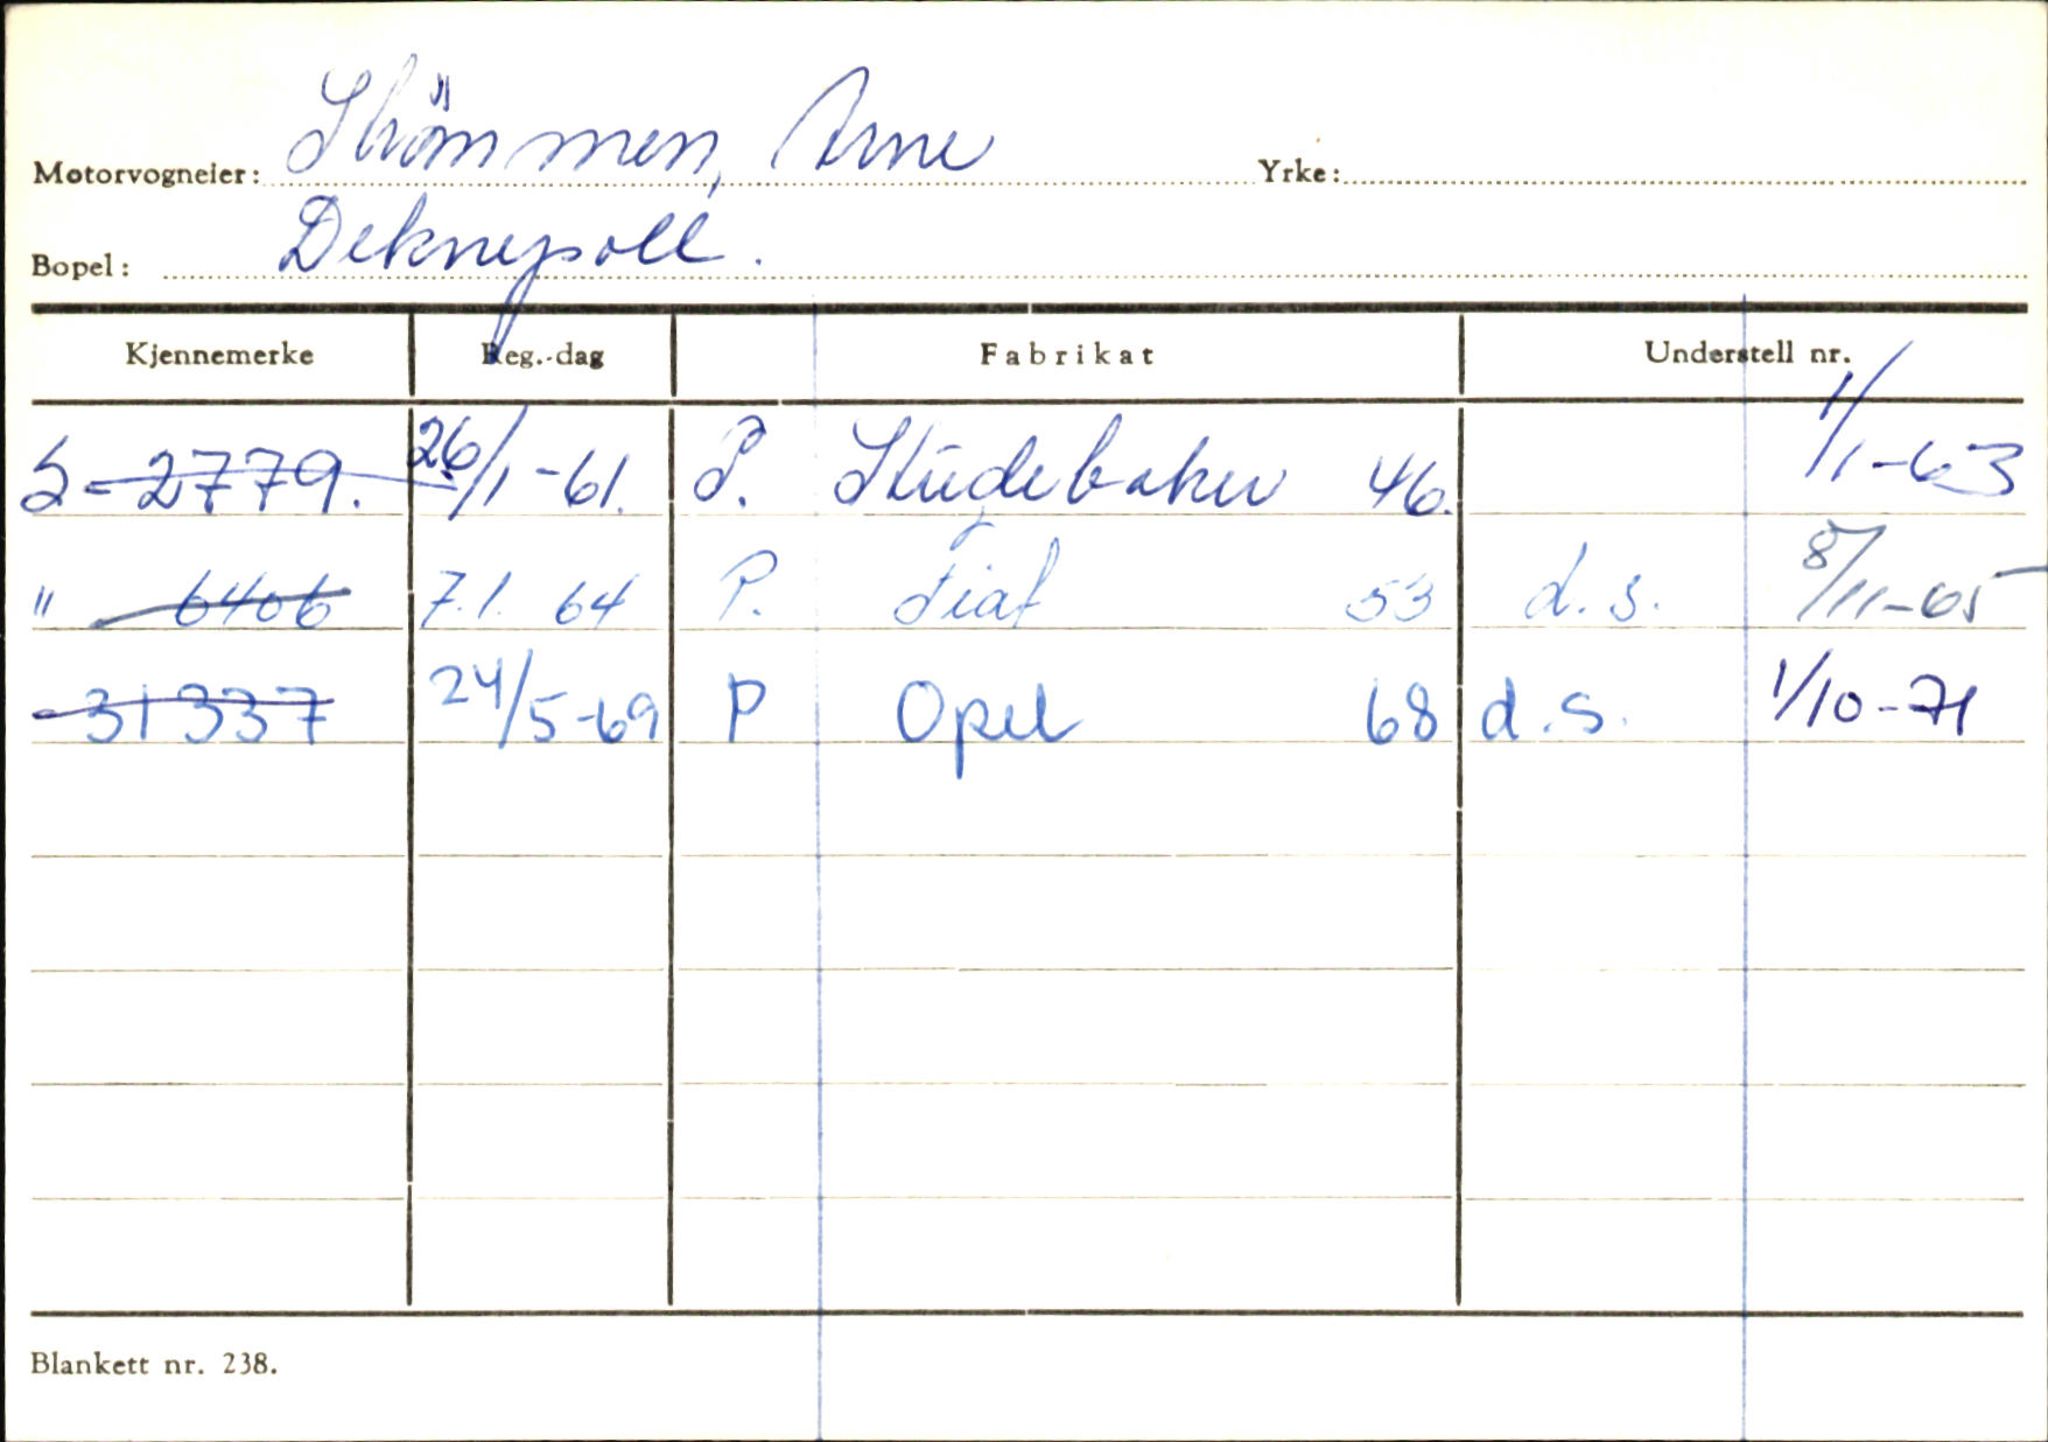 Motorvogneier: Strömmen, Arne Yrke:
Bopel: Deknepoll.
Kjennemerke Reg.-dag Fabrikat Understell nr.
S-2779. 26/1-61. P. Studebaker 46. 1/1-63
" 6406 7.1.64 P. Fiat 53 d.s. 8/11-65
-31337 24/5-69 P Opel 68 d.s. 1/10-71
Blankett nr. 238.